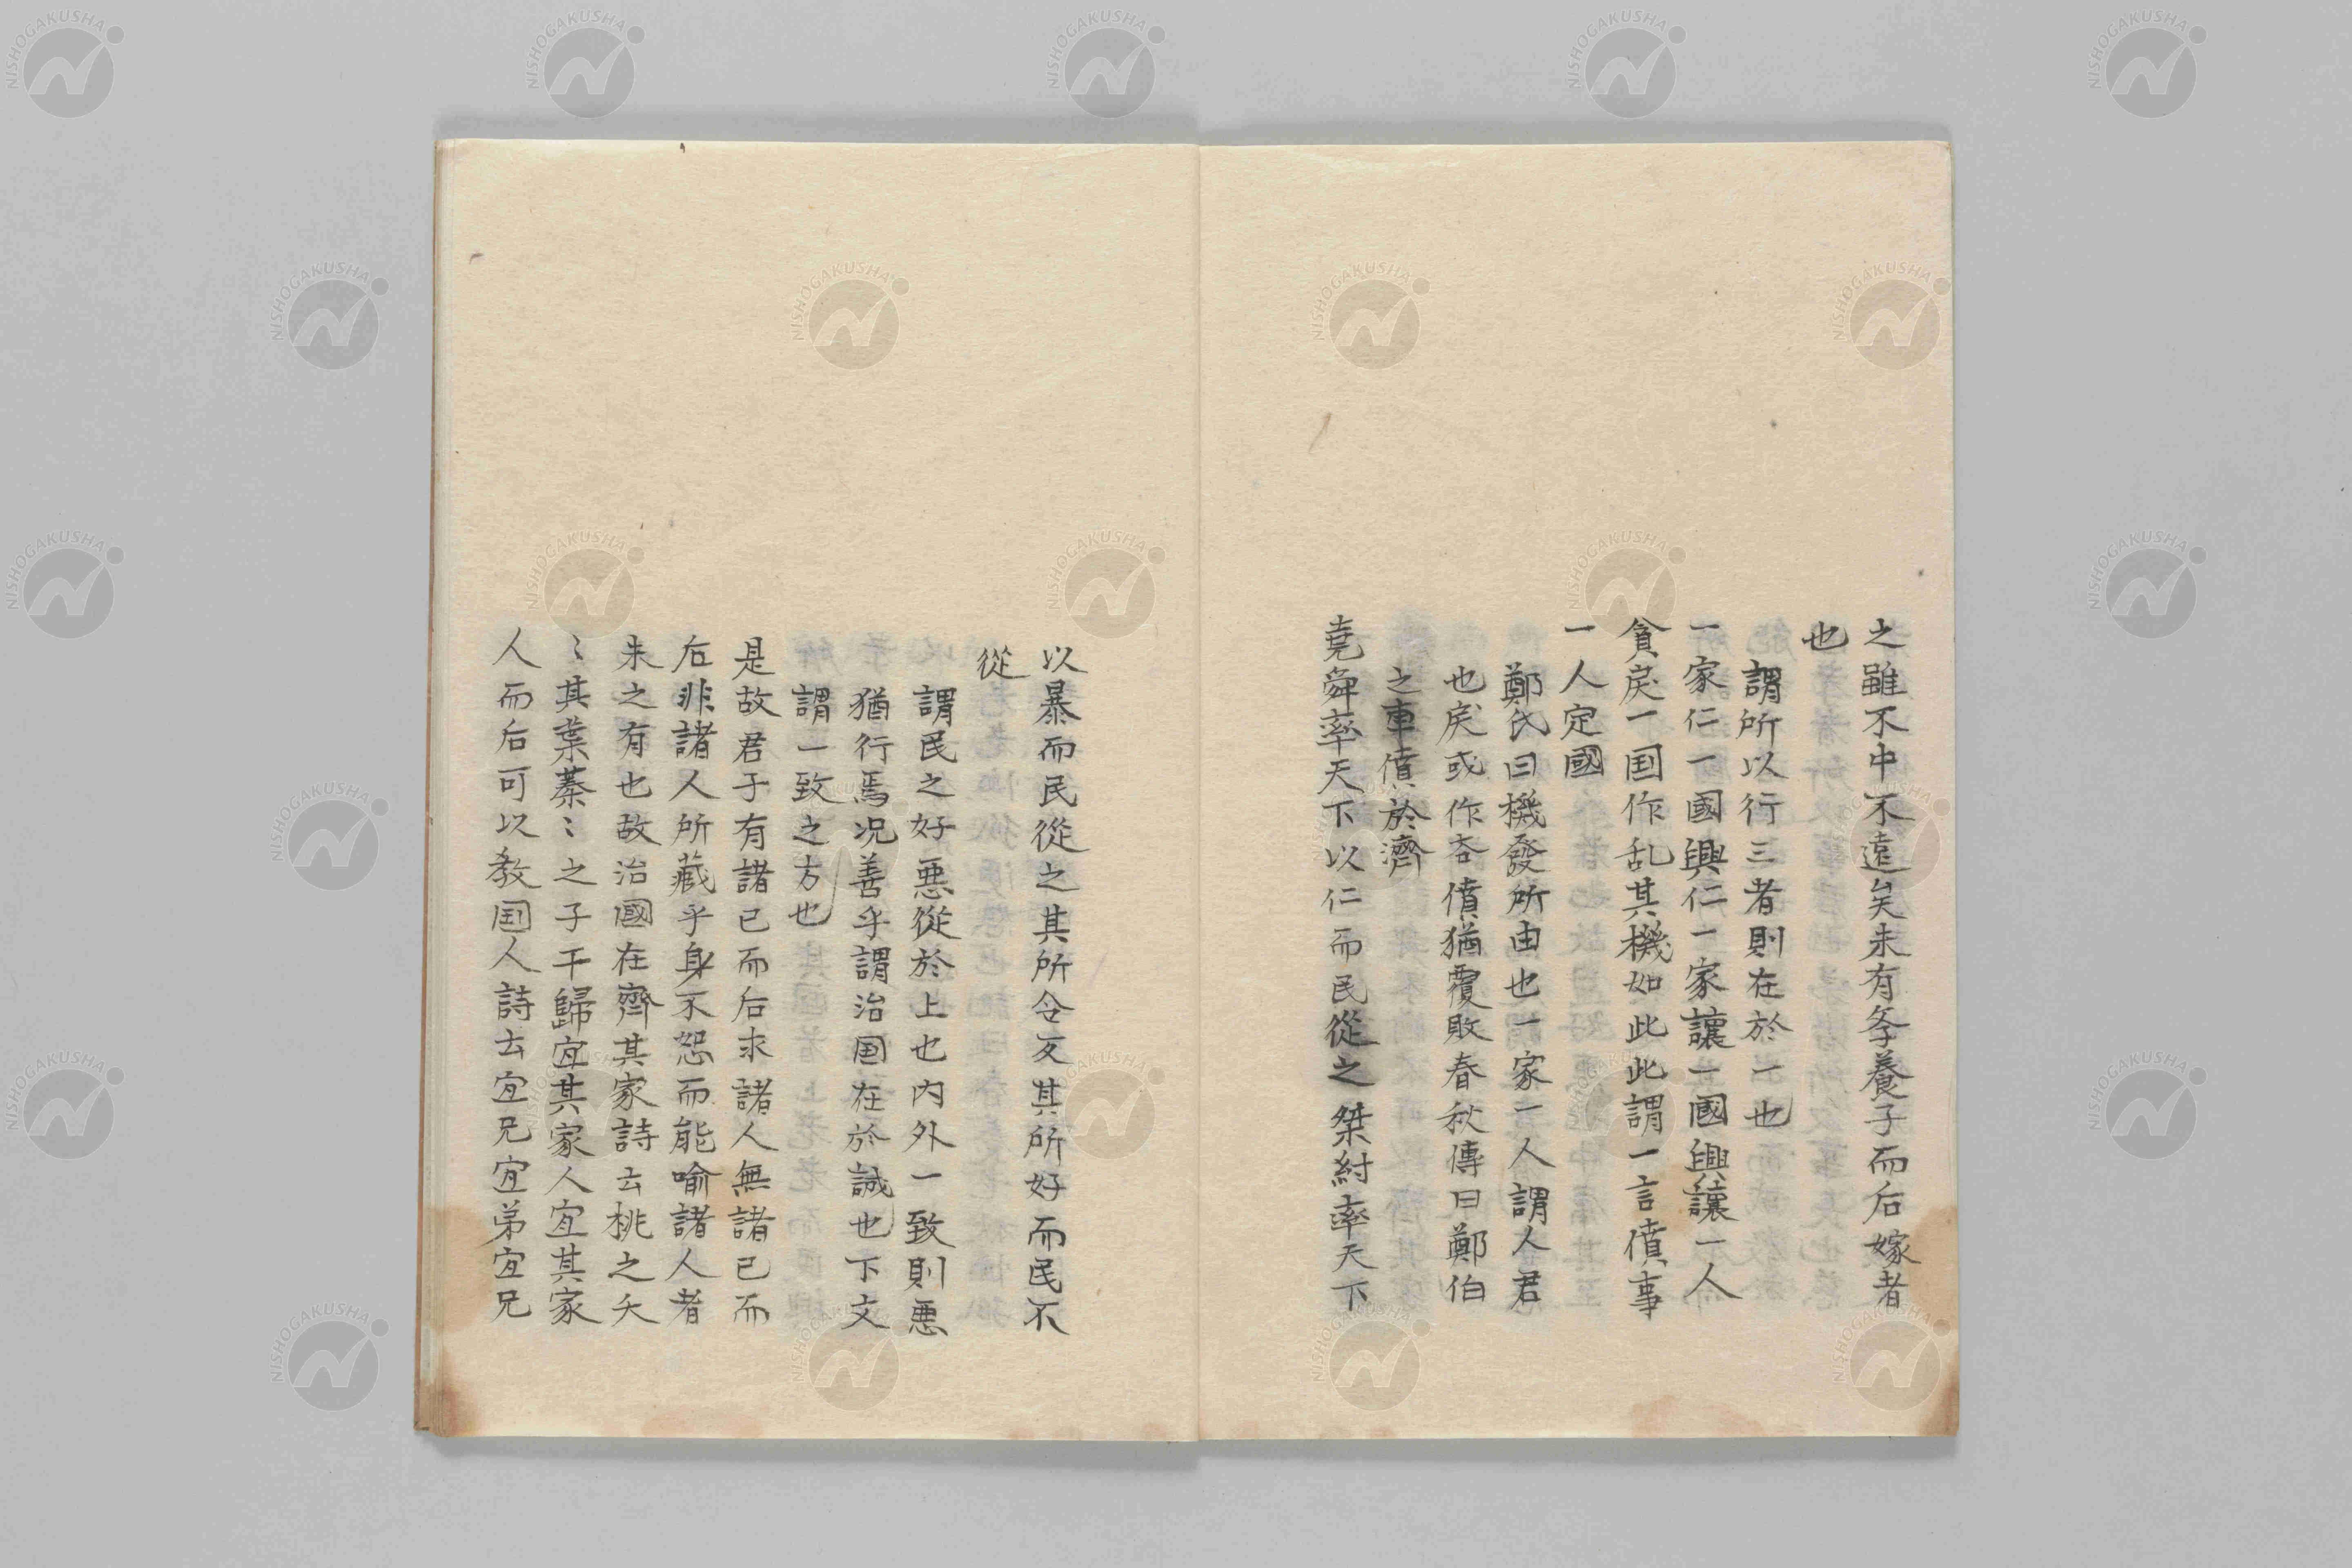 之雖不中不遠矣未有斈養子而后嫁者
也
謂所以行三者則在於一也
一家仁一國興仁一家讓一國興讓一人
貪戾一国作乱其機如此此謂一言僨事
一人定國
鄭氏曰機發所由也一家一人謂人君
也戾或作吝僨猶覆敗春秋傳曰鄭伯
之車僨於濟
堯舜率天下以仁而民從之桀紂率天下
以暴而民從之其所令反其所好而民不
從
謂民之好悪從於上也内外一致則悪
猶行焉况善乎謂治国在於誠也下文
謂一致之方也
是故君子有諸己而后求諸人無諸己而
后非諸人所藏乎身不恕而能喻諸人者
未之有也故治國在齊其家詩云桃之夭
〻其葉蓁〻之子于歸宜其家人宜其家
人而后可以教国人詩云宜兄宜弟宜兄
NISHOGAKUSHA